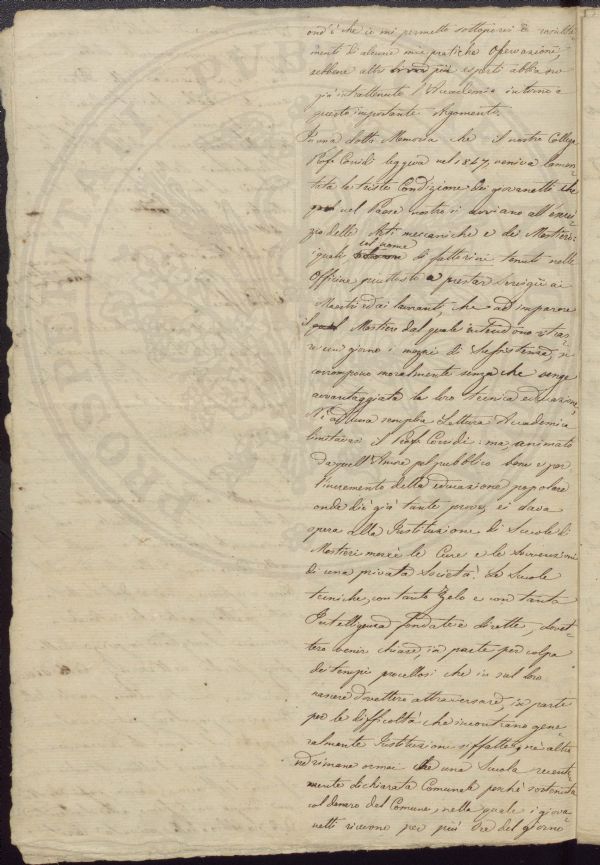 ond'è che io mi permetto sottoporvi i resulta
menti di alcune mie pratiche operazioni,
sebbene altri più esperti abbiano
già intrattenuto l'Accademia intorno a
questo importante Argomento.
In una dotta Memoria che il nostro Collega
Prof. Corridi leggeva nel 1847, veniva lamen-
tata la triste Condizione dei giovanetti che
nel Paese nostro si avviano all'eserci-
zio delle Arti meccaniche e dei Mestieri:
i quali col nome di fattorini tenuti nelle
Officine piuttosto a prestar servigii ai
Maestri ed ai lavoranti, che ad imparare
il Mestiere dal quale intendono ritrar-
re un giorno i mezzi di sussistenza, si
corrompono moralmente senza che venga
avvantaggiata la loro tecnica educazione.
Nè ad una semplice Lettura Accademica
limitavasi il Prof. Corridi: ma, animato
da quell'Amore pel pubblico bene e per
l'incremento della educazione popolare
onde diè già tante prove, ei dava
opera alla Instituzione di Scuole di
Mestieri mercè le Cure e le Sovvenzioni
di una privata Società. Le Scuole
tecniche, con tanto Zelo e con tanta
Intelligenza fondate e dirette, dovet-
tero venir chiuse, in parte per colpa
dei tempi procellosi che in sul loro
nascere dovettero attraversare, in parte
per le difficoltà che incontrano gene-
ralmente Instituzioni siffatte; nè altro
ne rimane ormai che una Scuola recente-
mente dichiarata Comunale perchè sostenuta
col denaro del Comune, nella quale i giova-
netti ricevono per più Ore del giorno